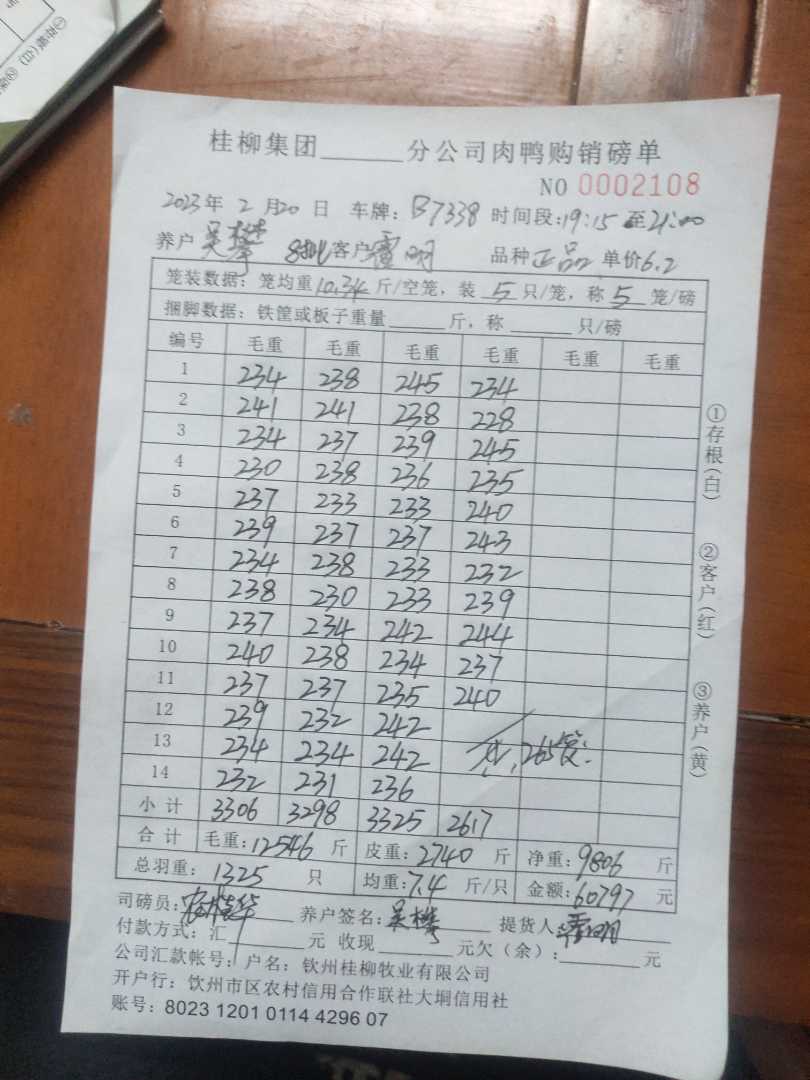 桂柳集团______分公司肉鸭购销磅单
NO 0002108
2023年 2月20日 车牌:B7338 时间段:19:15至21:00
养户 吴 8批 客户雷明 品种正品 单价6.2
笼装数据:笼均重10.34斤/空笼,装5只/笼,称5笼/磅
捆脚数据:铁筐或板子重量______斤,称______只/磅
编号 毛重 毛重 毛重 毛重 毛重 毛重
1 234 238 245 234
2 241 241 238 228
3 234 237 239 245
4 230 238 236 235
5 237 233 233 240
6 239 237 237 243
7 234 238 233 232
8 238 230 233 239
9 237 234 242 244
10 240 238 234 237
11 237 237 235 240
12 239 232 242
13 234 234 242 265
14 232 231 236
小计 3306 3298 3325 2617
合计 毛重:12546斤 皮重:2740斤 净重:9806斤
总羽重:1325只 均重:7.4斤/只 金额:60797元
司磅员: 养户签名:吴 提货人:雷明
付款方式:汇______元 收现______元欠(余):______元
公司汇款帐号:户名:钦州桂柳牧业有限公司
开户行:钦州市区农村信用合作联社大垌信用社
账号:8023 1201 0114 4296 07
①存根(白) ②客户(红) ③养户(黄)